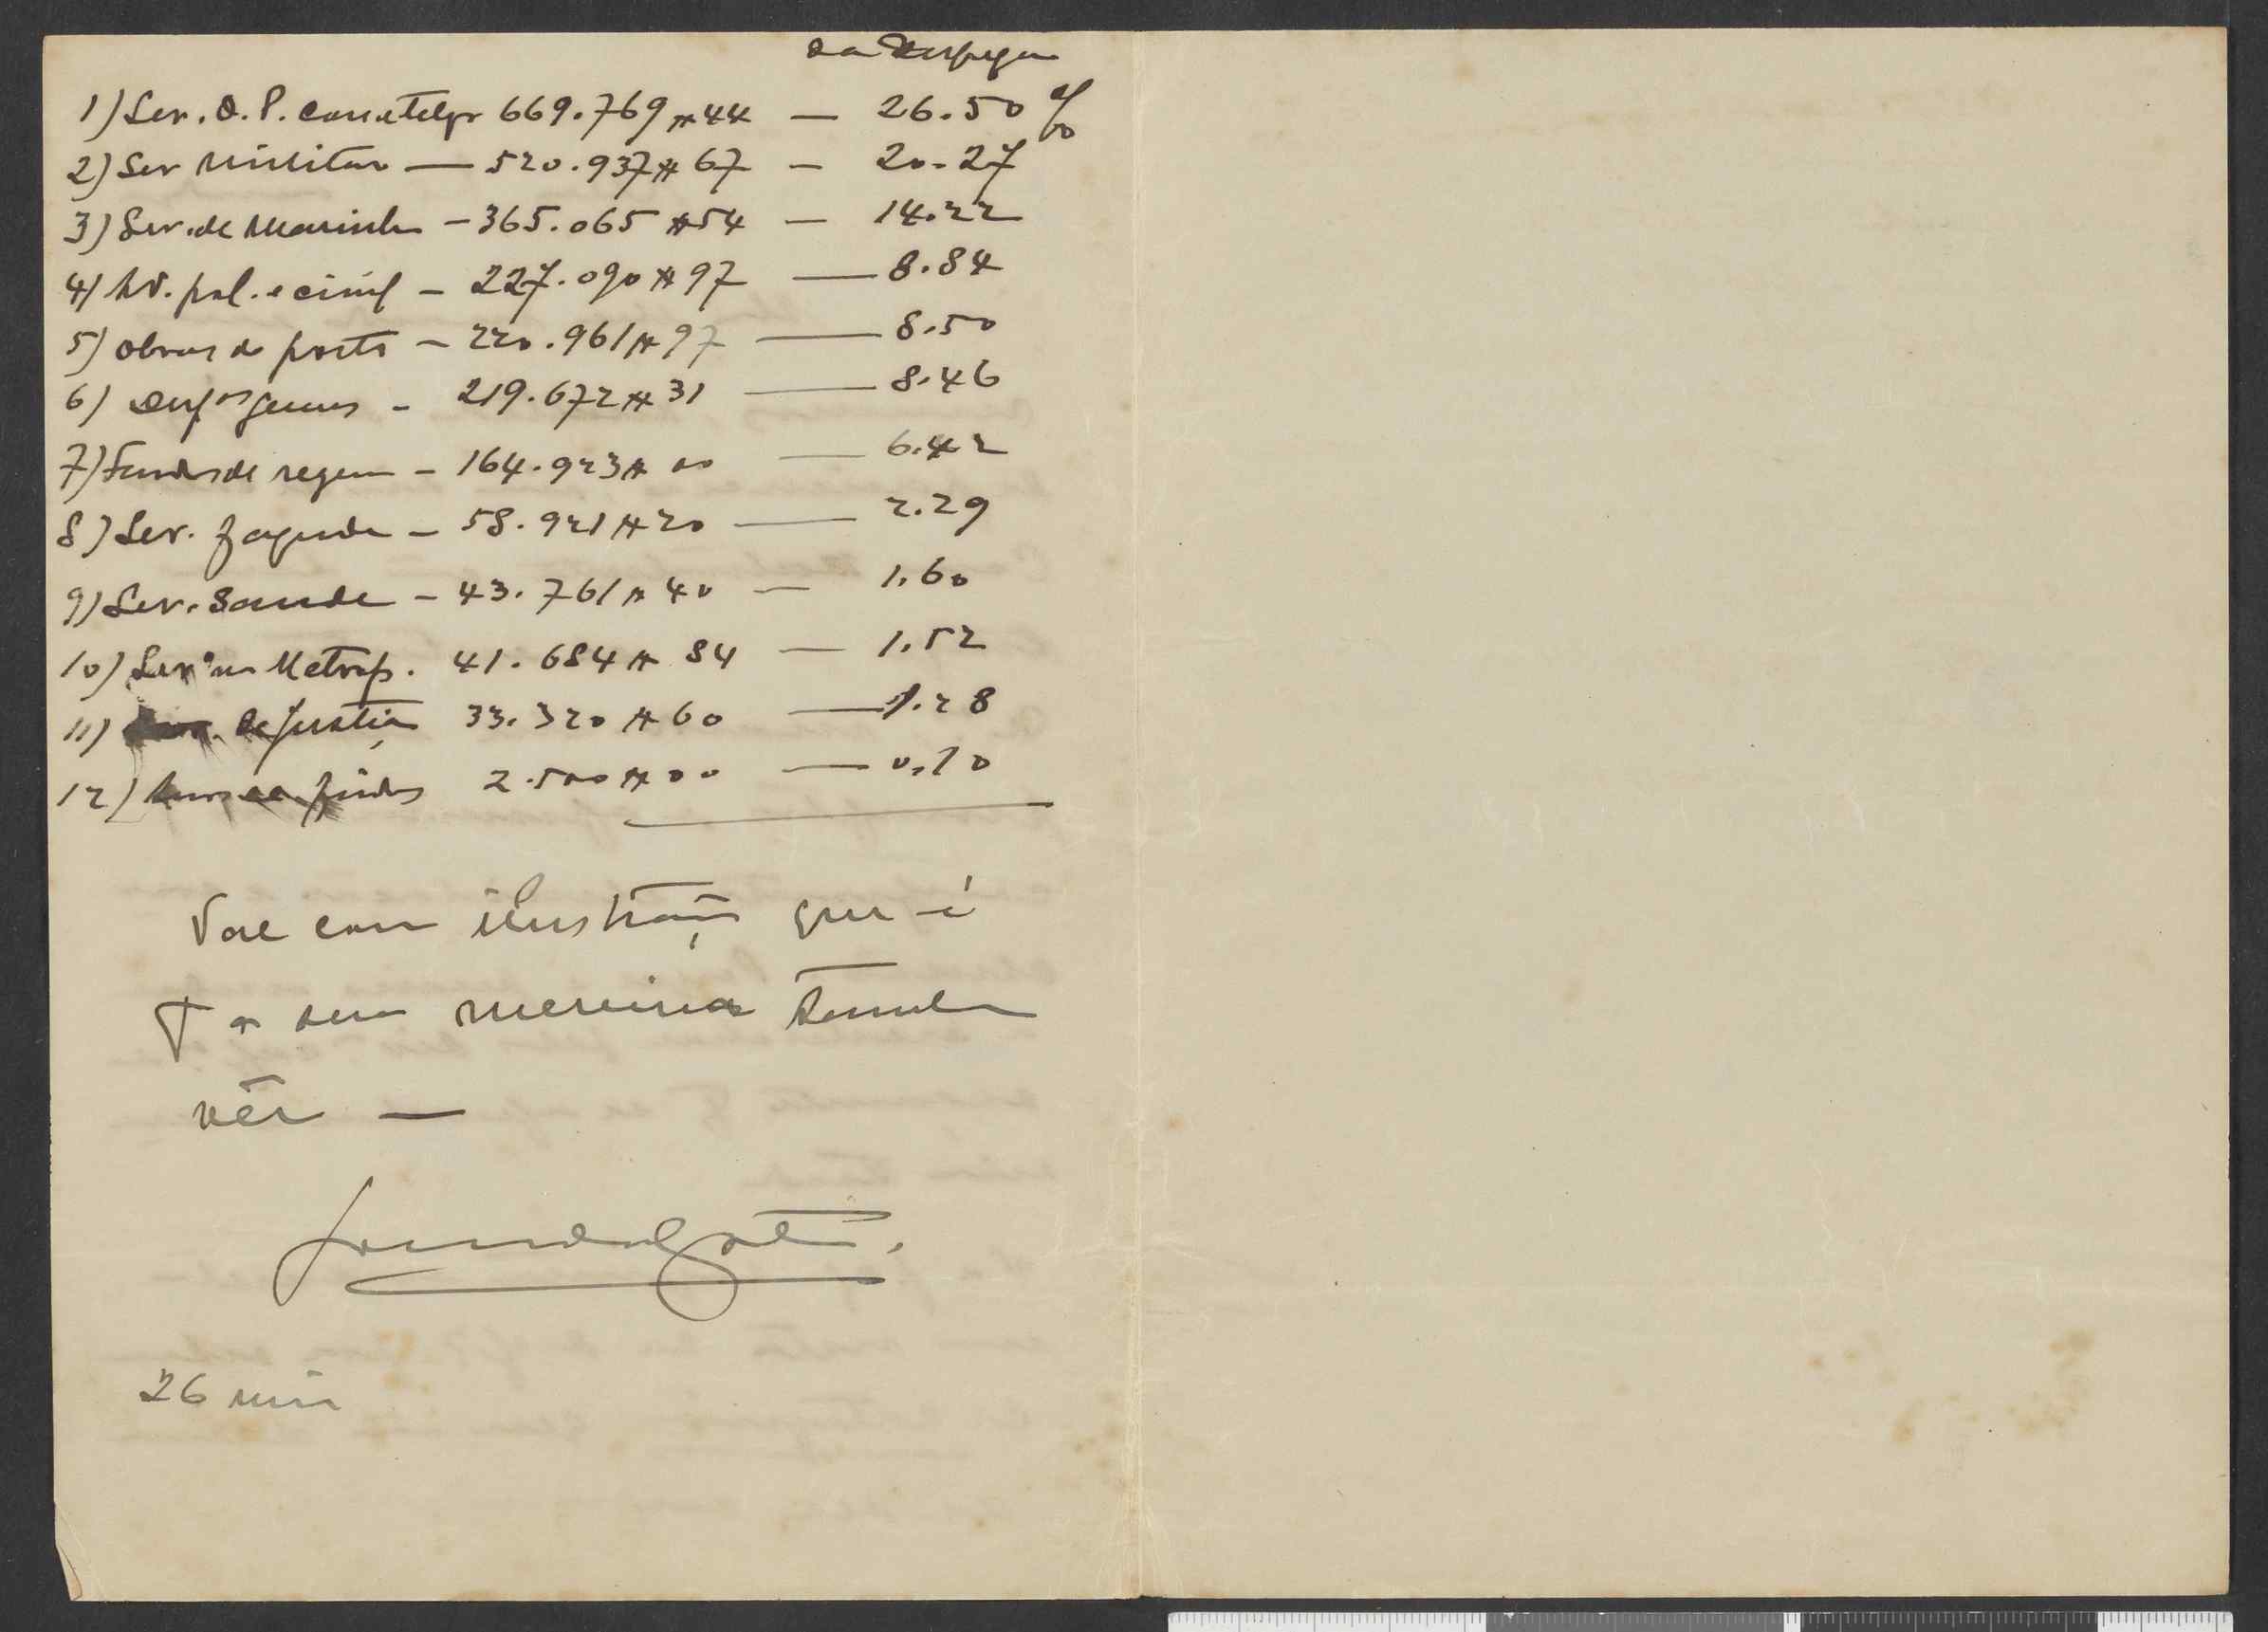 da Despeza
1) Ser. O. P. corr e telgr 669.769$44 — 26.50 %
2) Ser Militar — 520.937$67 — 20.27
3) Ser. de Marinha — 365.065$54 — 14.22
4) Ad. pol. e civil — 227.090$97 — 8.84
5) Obras do porto — 220.961$97 — 8.50
6) Desp.as geraes — 219.672$31 — 8.46
7) Fundo de regem — 164.923$00 — 6.42
8) Ser. fazenda — 58.921$20 — 2.29
9) Ser. Saude — 43.761$40 — 1.60
10) Ser.º na Metrop. 41.684$84 — 1.52
11) de justiça 33.320$60 — 1.28
12) findos 2.500$00 — 0.10
Vae com ilustração que é
p a sua menina tambem
vêr —
26